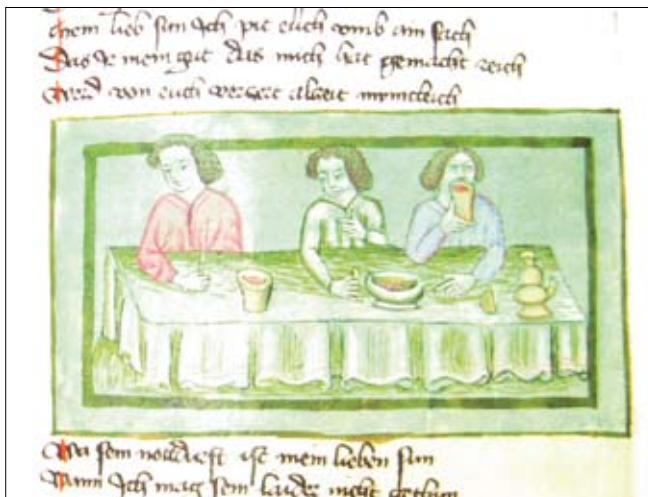 mein lieb sun Ich pit euch umb ain sach
Das Ir mein gut das mich hat gemacht reich
Werd von euch verzert albeit
Wann sein notdurft ist mein lieben sun
Wann Ich mag sein laider nicht gethun